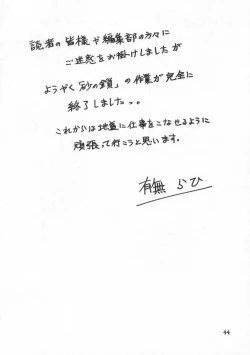 読者の皆様や編集部の方々に
ご迷惑をお掛けしましたが
ようやく「砂の鎖」の作業が完全に
終了しました…。
これからは地道に仕事をこなせるように
頑張って行こうと思います。
有無らひ
44